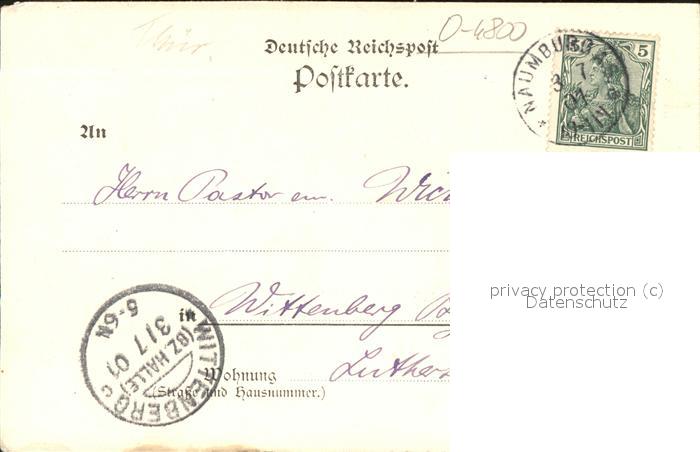 Thür
O-4800
Deutsche Reichspost
Postkarte.
NAUMBURG
5
REICHSPOST
An
Herrn Pastor em.
in Wittenberg
Wohnung
(Straße und Hausnummer.)
WITTENBERG
(BZ. HALLE)
31 7 01
5-6N
privacy protection (c)
Datenschutz